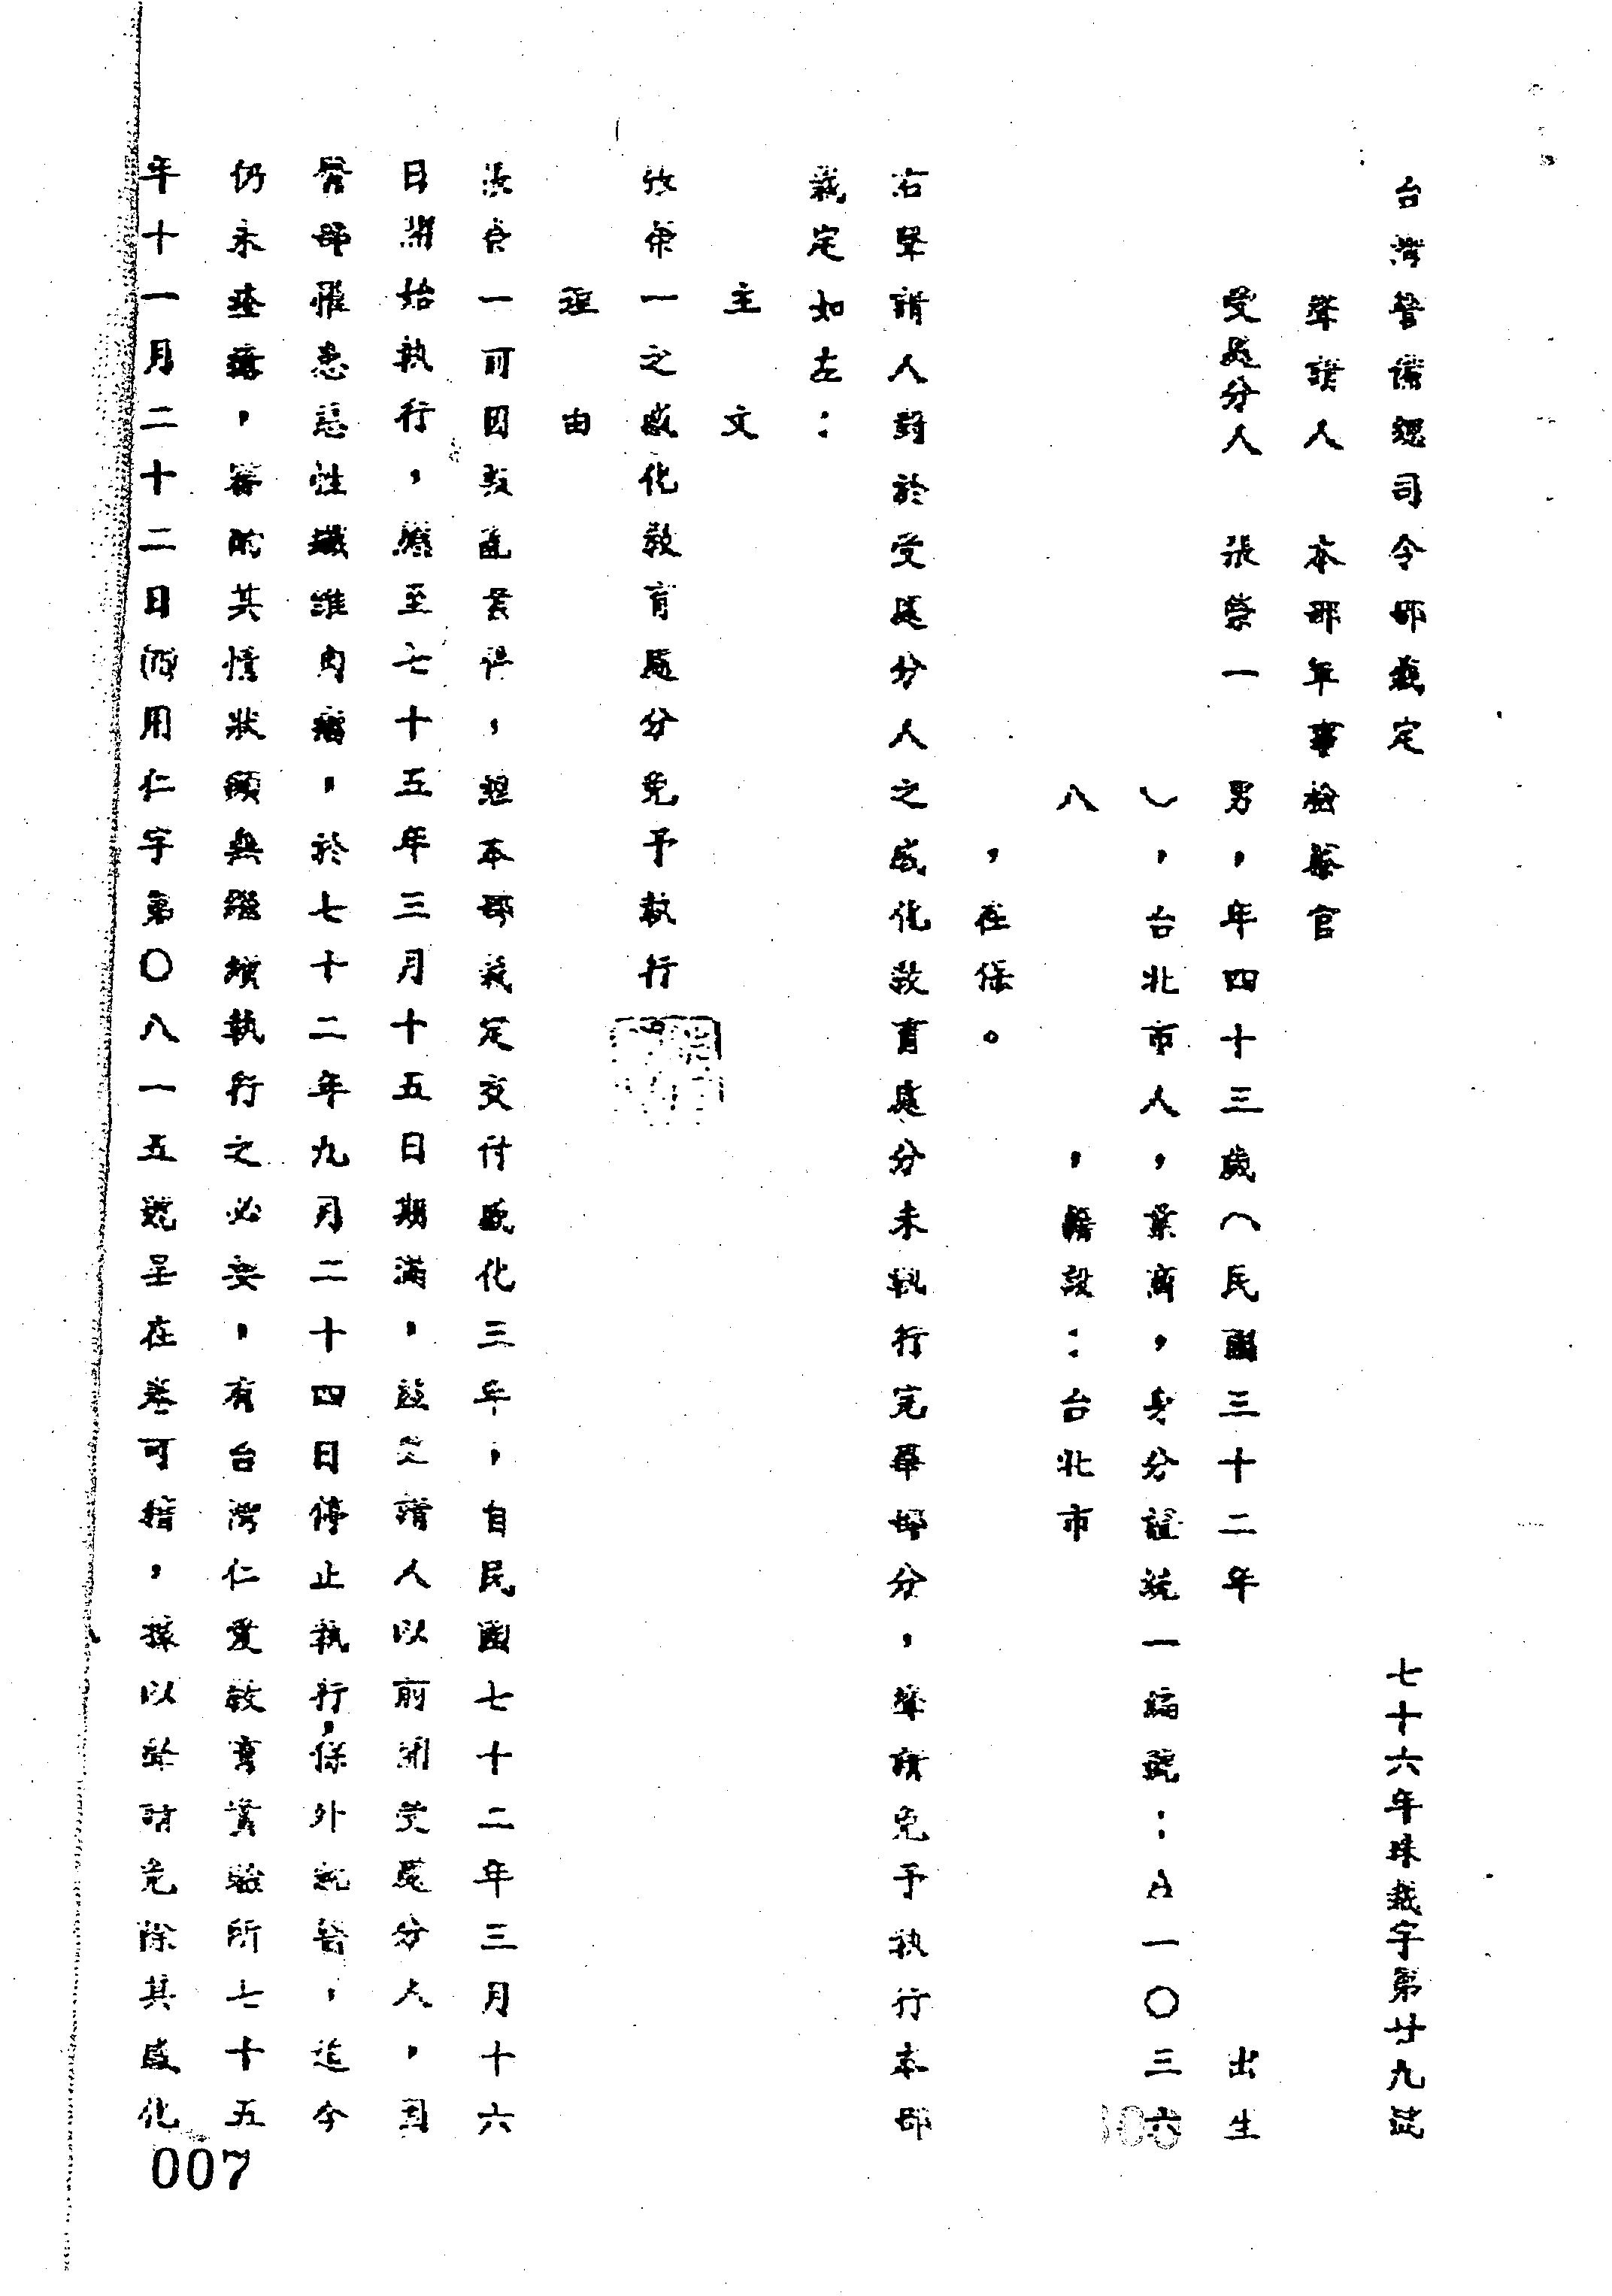 台灣警備總司令部裁定
七十六年珠裁字第廿九號
聲請人 本部軍事檢察官
受處分人 張榮一 男,年四十三歲(民國三十二年 出生
),台北市人,業商,身分證統一編號:A一〇三六
八 ,籍設:台北市
,在保。
右聲請人對於受處分人之感化教育處分未執行完畢部分,聲請免予執行本部
裁定如左:
主文
張榮一之感化教育處分免予執行
理由
張榮一可因叛亂案件,經本部裁定交付感化三年,自民國七十二年三月十六
日開始執行,應至七十五年三月十五日期滿,茲聲請人以前開受處分人,因
胃部罹患惡性纖維肉瘤,於七十二年九月二十四日停止執行,保外就醫,迄今
仍未痊癒,審酌其情狀顯無繼續執行之必要,有台灣仁愛教育實驗所七十五
年十一月二十二日(75)用仁字第〇八一五號呈在卷可稽,據以聲請免除其感化
007